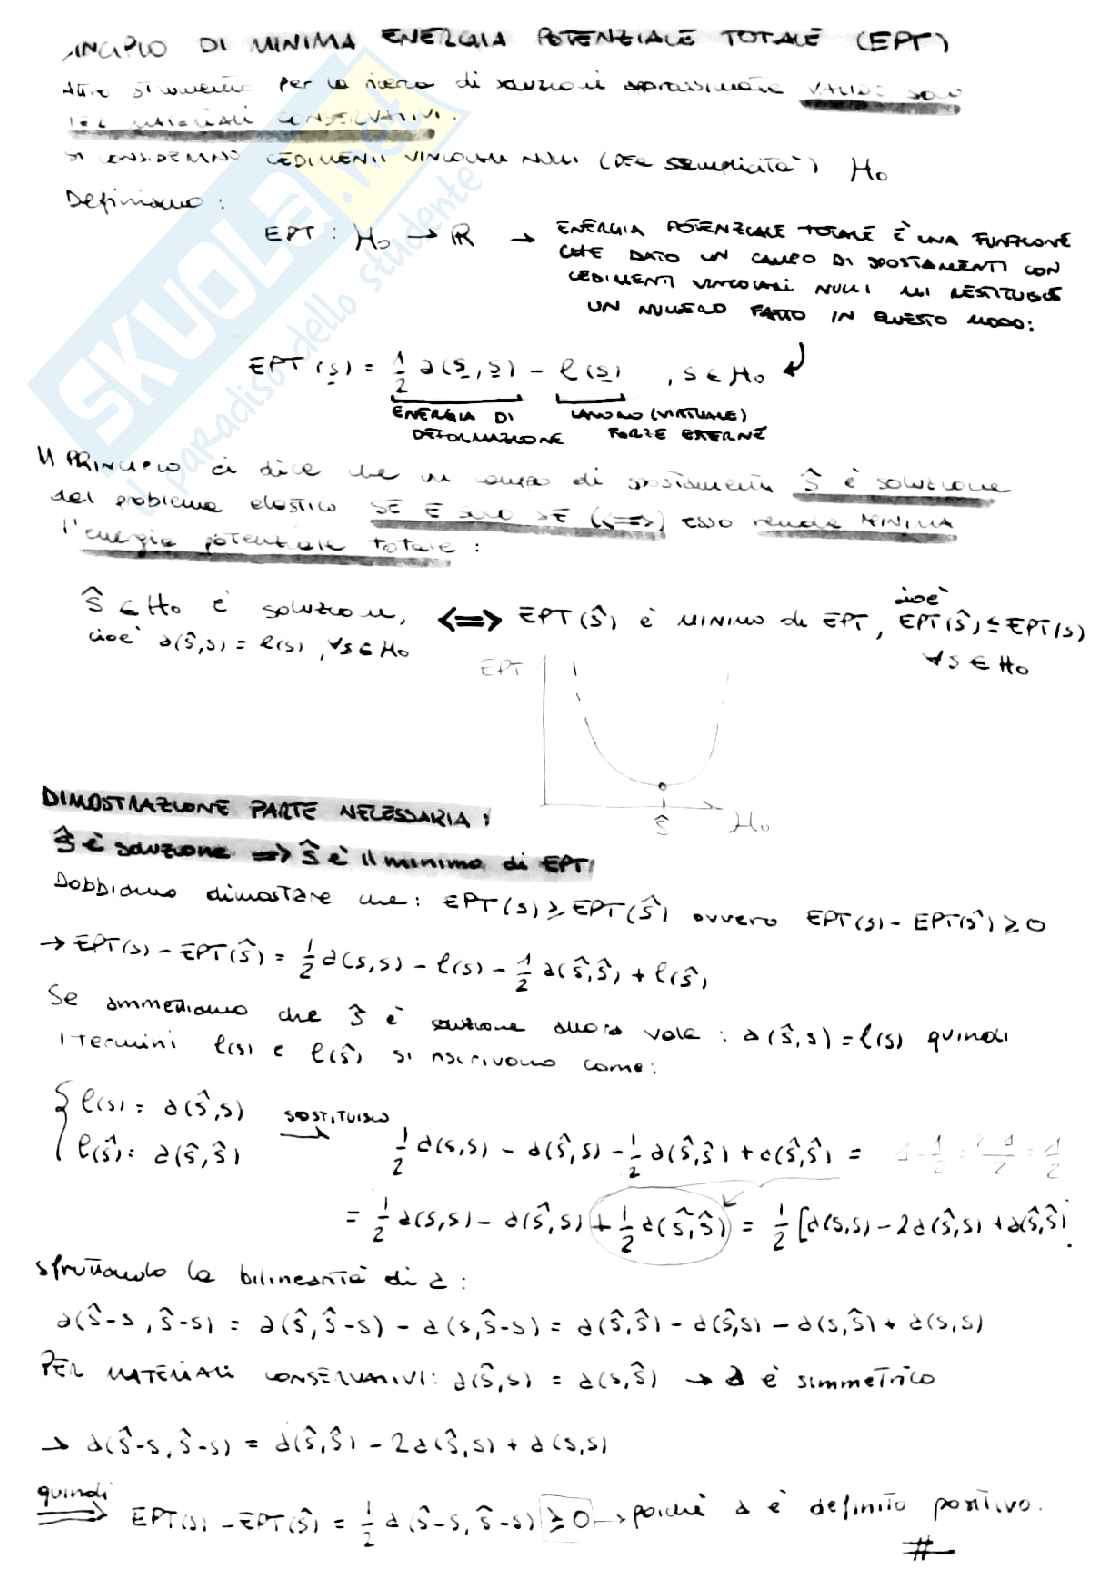 DI MINIMA ENERGIA POTENZIALE TOTALE (EPT)
per la di soluzioni approssimate
CONSERVATIVI.
SI CONSIDERANO CEDIMENTI VINCOLARI NULLI (PER SEMPLICITA') H₀
Definiamo:
EPT : H₀ → R → ENERGIA POTENZIALE TOTALE È UNA FUNZIONE
CHE DATO UN CAMPO DI SPOSTAMENTI CON
CEDIMENTI VINCOLARI NULLI MI RESTITUISCE
UN NUMERO FATTO IN QUESTO MODO:
EPT (s) = 1/2 a(s,s) - l(s) , s ∈ H₀
ENERGIA DI DEFORMAZIONE
LAVORO (VIRTUALE) FORZE ESTERNE
Il PRINCIPIO ci dice che un campo di spostamenti ŝ è soluzione
del problema elastico SE E SOLO SE (<=>) esso rende MINIMA
l'energia potenziale totale :
ŝ ∈ H₀ è soluzione, <=> EPT(ŝ) è MINIMO di EPT, cioè EPT(ŝ) ≤ EPT(s)
cioè a(ŝ,s) = l(s) , ∀s ∈ H₀ ∀s ∈ H₀
EPT
ŝ H₀
DIMOSTRAZIONE PARTE NECESSARIA :
ŝ è soluzione => ŝ è il minimo di EPT
Dobbiamo dimostrare che: EPT(s) ≥ EPT(ŝ) ovvero EPT(s) - EPT(ŝ) ≥ 0
→ EPT(s) - EPT(ŝ) = 1/2 a(s,s) - l(s) - 1/2 a(ŝ,ŝ) + l(ŝ)
Se ammettiamo che ŝ è soluzione allora vale : a(ŝ,s) = l(s) quindi
i termini l(s) e l(ŝ) si riscrivono come:
{ l(s) = a(ŝ,s)
l(ŝ) = a(ŝ,ŝ)
SOSTITUISCO → 1/2 a(s,s) - a(ŝ,s) - 1/2 a(ŝ,ŝ) + a(ŝ,ŝ) =
= 1/2 a(s,s) - a(ŝ,s) + 1/2 a(ŝ,ŝ) = 1/2 [a(s,s) - 2a(ŝ,s) + a(ŝ,ŝ)]
sfruttando la bilinearità di a :
a(ŝ-s, ŝ-s) = a(ŝ, ŝ-s) - a(s, ŝ-s) = a(ŝ,ŝ) - a(ŝ,s) - a(s,ŝ) + a(s,s)
PER MATERIALI CONSERVATIVI: a(ŝ,s) = a(s,ŝ) → a è simmetrico
→ a(ŝ-s, ŝ-s) = a(ŝ,ŝ) - 2a(ŝ,s) + a(s,s)
quindi
=> EPT(s) - EPT(ŝ) = 1/2 a(ŝ-s, ŝ-s) ≥ 0 → poiché a è definito positivo.
#
SKUOLA.net
il paradiso dello studente